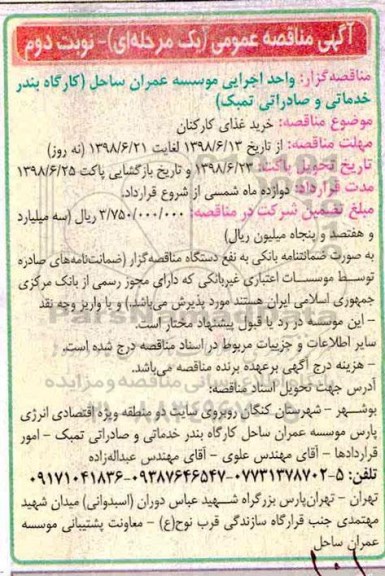 آگهی مناقصه عمومی (یک مرحله‌ای) - نوبت دوم
مناقصه‌گزار: واحد اجرایی موسسه عمران ساحل (کارگاه بندر
خدماتی و صادراتی تمبک)
موضوع مناقصه: خرید غذای کارکنان
مهلت مناقصه: از تاریخ ۱۳۹۸/۶/۱۳ لغایت ۱۳۹۸/۶/۲۱ (نه روز)
تاریخ تحویل پاکت: ۱۳۹۸/۶/۲۳ و تاریخ بازگشایی پاکت ۱۳۹۸/۶/۲۵
مدت قرارداد: دوازده ماه شمسی از شروع قرارداد.
مبلغ تضمین شرکت در مناقصه: ۳/۷۵۰/۰۰۰/۰۰۰ ریال (سه میلیارد
و هفتصد و پنجاه میلیون ریال)
به صورت ضمانتنامه بانکی به نفع دستگاه مناقصه‌گزار (ضمانت‌نامه‌های صادره
توسط موسسات اعتباری غیربانکی که دارای مجوز رسمی از بانک مرکزی
جمهوری اسلامی ایران هستند مورد پذیرش می‌باشد.) و یا واریز وجه نقد
- این موسسه در رد یا قبول پیشنهاد مختار است.
سایر اطلاعات و جزییات مربوط در اسناد مناقصه درج شده است.
- هزینه درج آگهی برعهده برنده مناقصه می‌باشد.
آدرس جهت تحویل اسناد مناقصه:
بوشهر - شهرستان کنگان روبروی سایت دو منطقه ویژه اقتصادی انرژی
پارس موسسه عمران ساحل کارگاه بندر خدماتی و صادراتی تمبک - امور
قراردادها - آقای مهندس علوی - آقای مهندس عبداله‌زاده
تلفن: ۵-۰۷۷۳۱۳۷۸۷۰۲-۰۹۳۸۷۶۴۶۵۴۷-۰۹۱۷۱۰۴۱۸۳۶
تهران - تهران‌پارس بزرگراه شهید عباس دوران (اسبدوانی) میدان شهید
مهتمدی جنب قرارگاه سازندگی قرب نوح(ع) - معاونت پشتیبانی موسسه
عمران ساحل
ParsNamadData